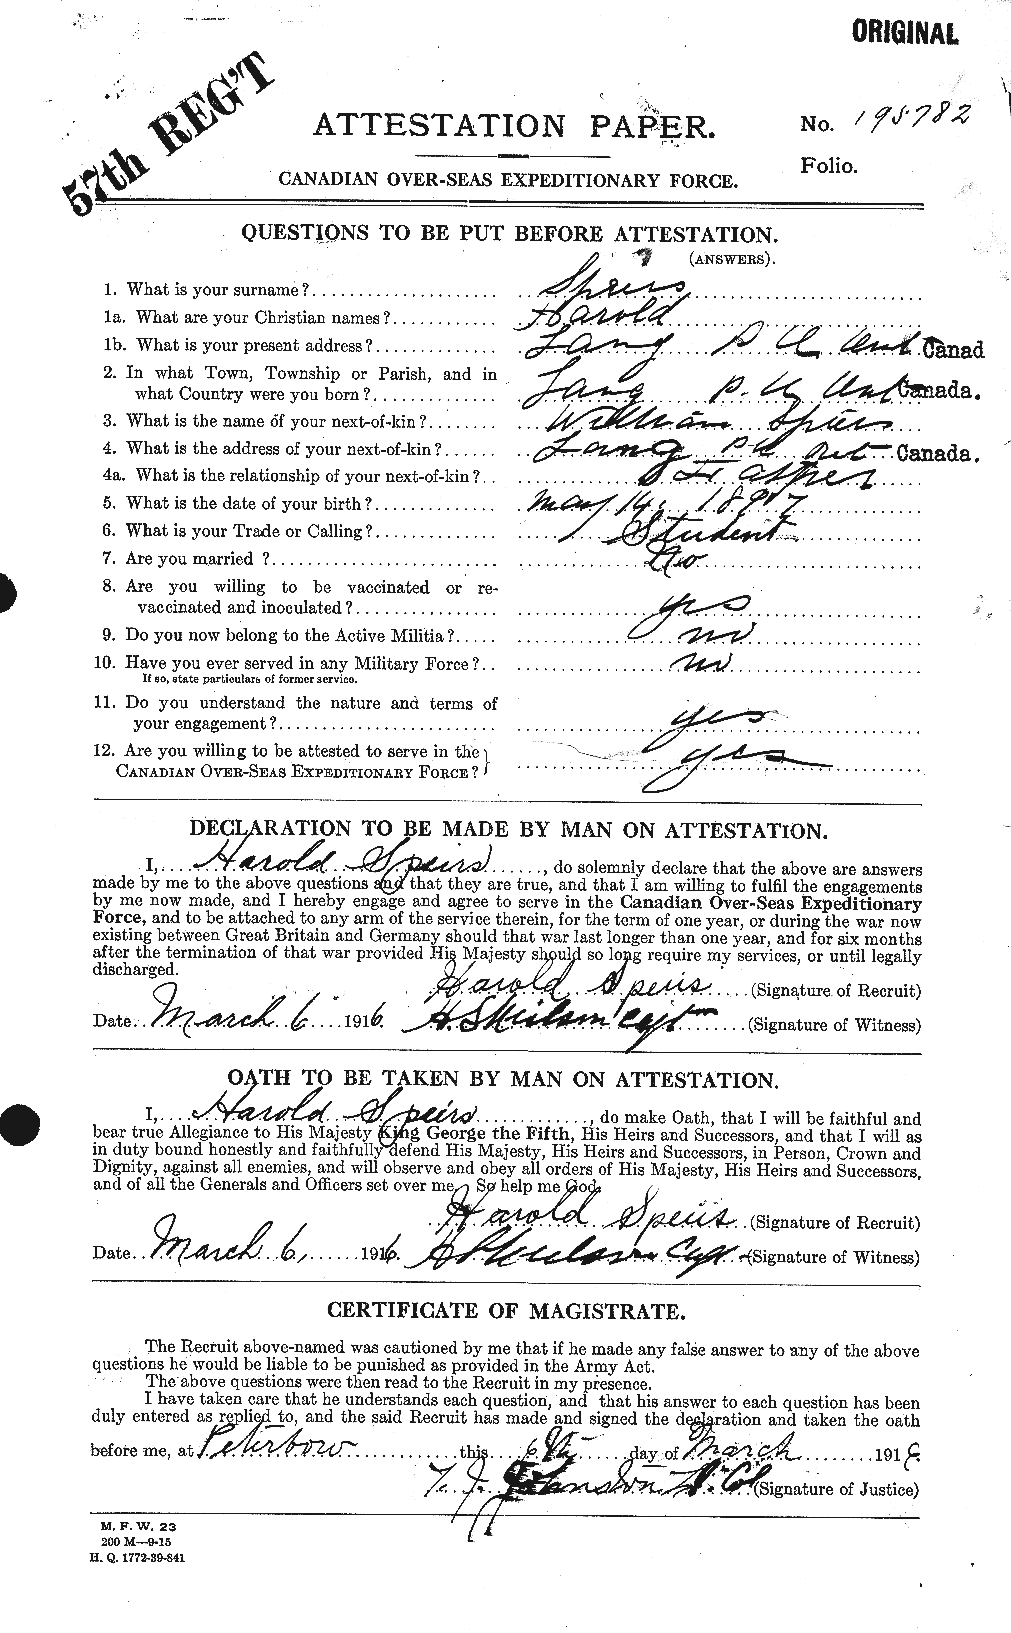 ORIGINAL
57th REG'T
ATTESTATION PAPER.
No. 195782
Folio.
CANADIAN OVER-SEAS EXPEDITIONARY FORCE.
QUESTIONS TO BE PUT BEFORE ATTESTATION.
(ANSWERS).
1. What is your surname? Speirs
1a. What are your Christian names? Harold
1b. What is your present address? Lang P.O. Ont Canad
2. In what Town, Township or Parish, and in
what Country were you born? Lang P.O. Ont Canada.
3. What is the name of your next-of-kin? William Speirs
4. What is the address of your next-of-kin? Lang P.O. Ont Canada.
4a. What is the relationship of your next-of-kin? Father
5. What is the date of your birth? May 14, 1897
6. What is your Trade or Calling? Student
7. Are you married? No
8. Are you willing to be vaccinated or re-
vaccinated and inoculated? yes
9. Do you now belong to the Active Militia? no
10. Have you ever served in any Military Force? no
If so, state particulars of former service.
11. Do you understand the nature and terms of
your engagement? yes
12. Are you willing to be attested to serve in the
CANADIAN OVER-SEAS EXPEDITIONARY FORCE? yes
DECLARATION TO BE MADE BY MAN ON ATTESTATION.
I, Harold Speirs, do solemnly declare that the above are answers
made by me to the above questions and that they are true, and that I am willing to fulfil the engagements
by me now made, and I hereby engage and agree to serve in the Canadian Over-Seas Expeditionary
Force, and to be attached to any arm of the service therein, for the term of one year, or during the war now
existing between Great Britain and Germany should that war last longer than one year, and for six months
after the termination of that war provided His Majesty should so long require my services, or until legally
discharged.
Harold Speirs (Signature of Recruit)
Date March 6 1916. Capt (Signature of Witness)
OATH TO BE TAKEN BY MAN ON ATTESTATION.
I, Harold Speirs, do make Oath, that I will be faithful and
bear true Allegiance to His Majesty King George the Fifth, His Heirs and Successors, and that I will as
in duty bound honestly and faithfully defend His Majesty, His Heirs and Successors, in Person, Crown and
Dignity, against all enemies, and will observe and obey all orders of His Majesty, His Heirs and Successors,
and of all the Generals and Officers set over me. So help me God.
Harold Speirs (Signature of Recruit)
Date March 6, 1916. Capt (Signature of Witness)
CERTIFICATE OF MAGISTRATE.
The Recruit above-named was cautioned by me that if he made any false answer to any of the above
questions he would be liable to be punished as provided in the Army Act.
The above questions were then read to the Recruit in my presence.
I have taken care that he understands each question, and that his answer to each question has been
duly entered as replied to, and the said Recruit has made and signed the declaration and taken the oath
before me, at Peterboro this 6th day of March 1916.
Johnston (Signature of Justice)
M. F. W. 23
200 M—9-15
H. Q. 1772-39-841